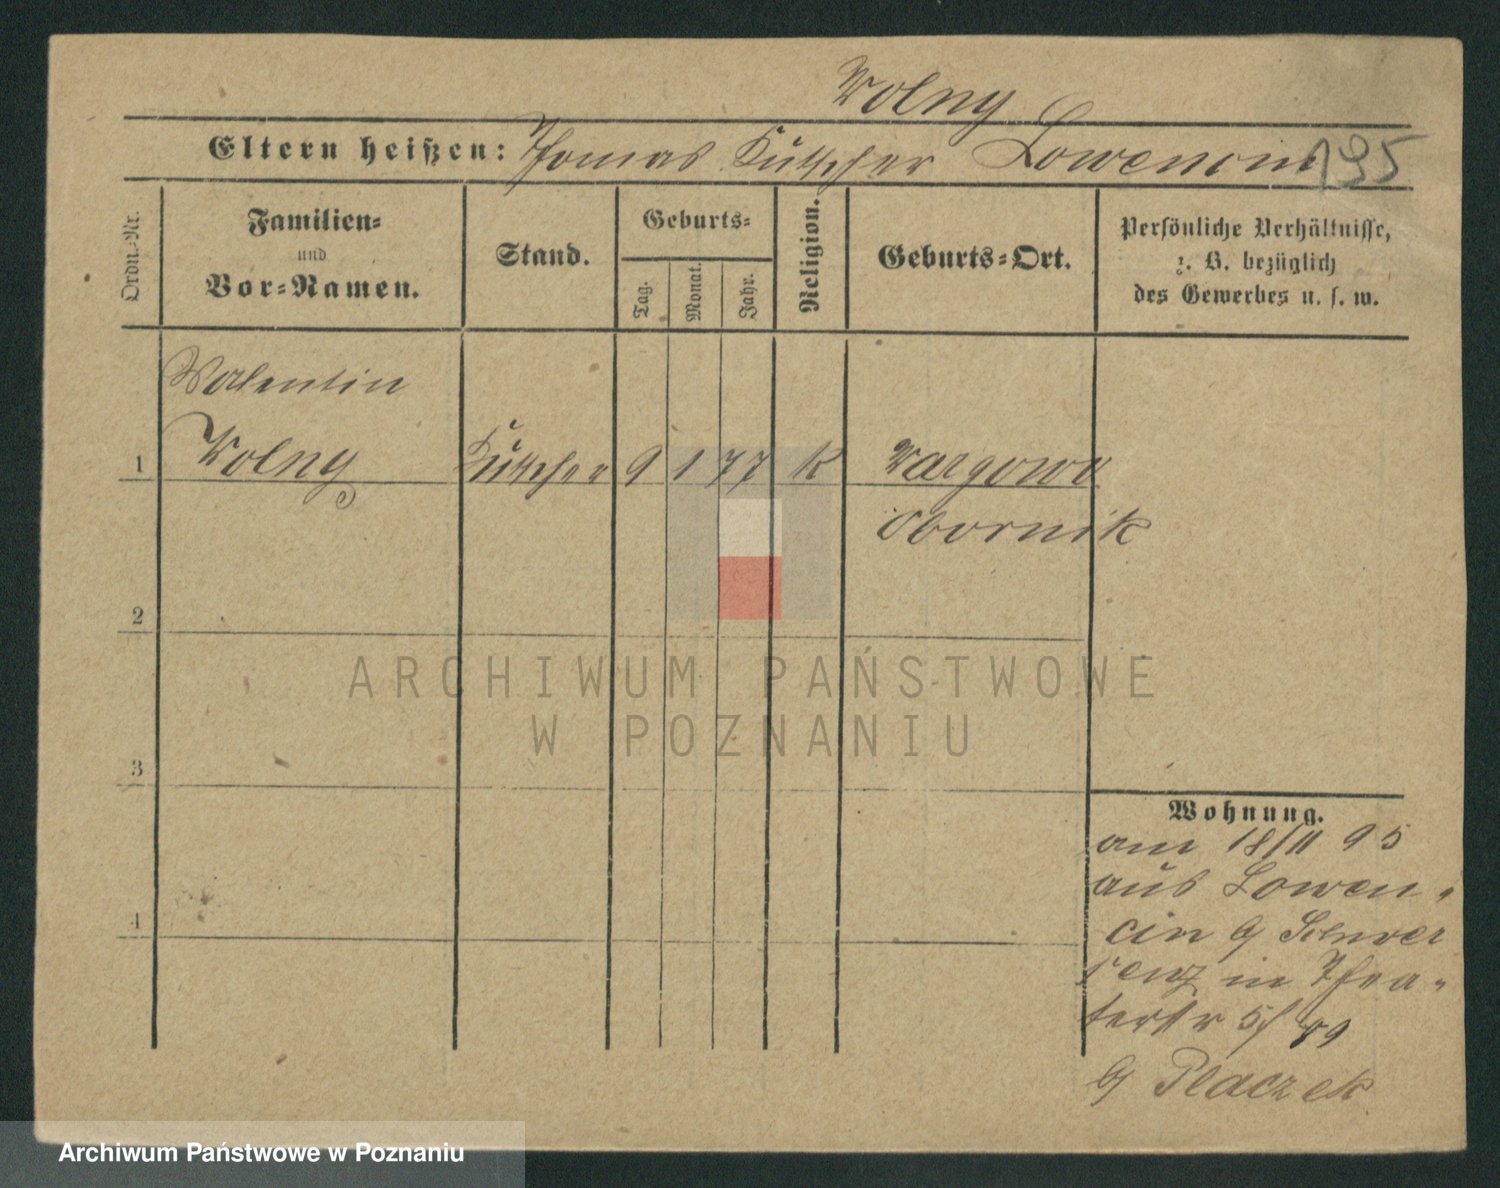 Wolny
Eltern heißen: Thomas Kutscher Lowencin 195
Ordn.-Nr.
Familien- und Vor-Namen.
Stand.
Geburts-
Tag.
Monat.
Jahr.
Religion.
Geburts-Ort.
Persönliche Verhältnisse,
z. B. bezüglich
des Gewerbes u. s. w.
Valentin
1 Wolny Kutscher 9 1 77 K Wargowo
Obornik
2
3
4
Wohnung.
am 18/11 95
aus Lowen-
cin b/ Schwer
senz in Thea-
terstr 5/
b/ Placzek
ARCHIWUM PAŃSTWOWE
W POZNANIU
Archiwum Państwowe w Poznaniu